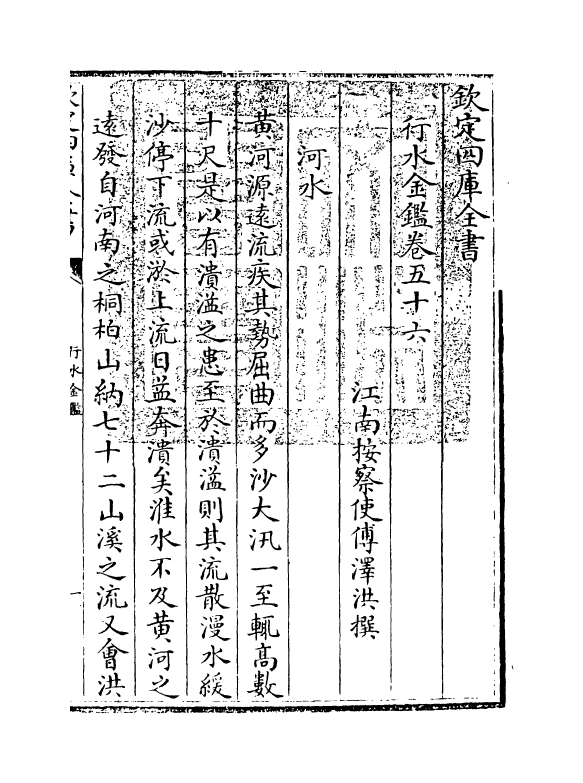 欽定四庫全書
行水金鑑卷五十六
江南按察使傅澤洪撰
河水
黄河源遠流疾其勢屈曲而多沙大汛一至輒高數
十尺是以有潰溢之患至於潰溢則其流散漫水緩
沙停下流或淤上流日益奔潰矣淮水不及黄河之
遠發自河南之桐柏山納七十二山溪之流又會洪
欽定四庫全書
行水金鑑
一